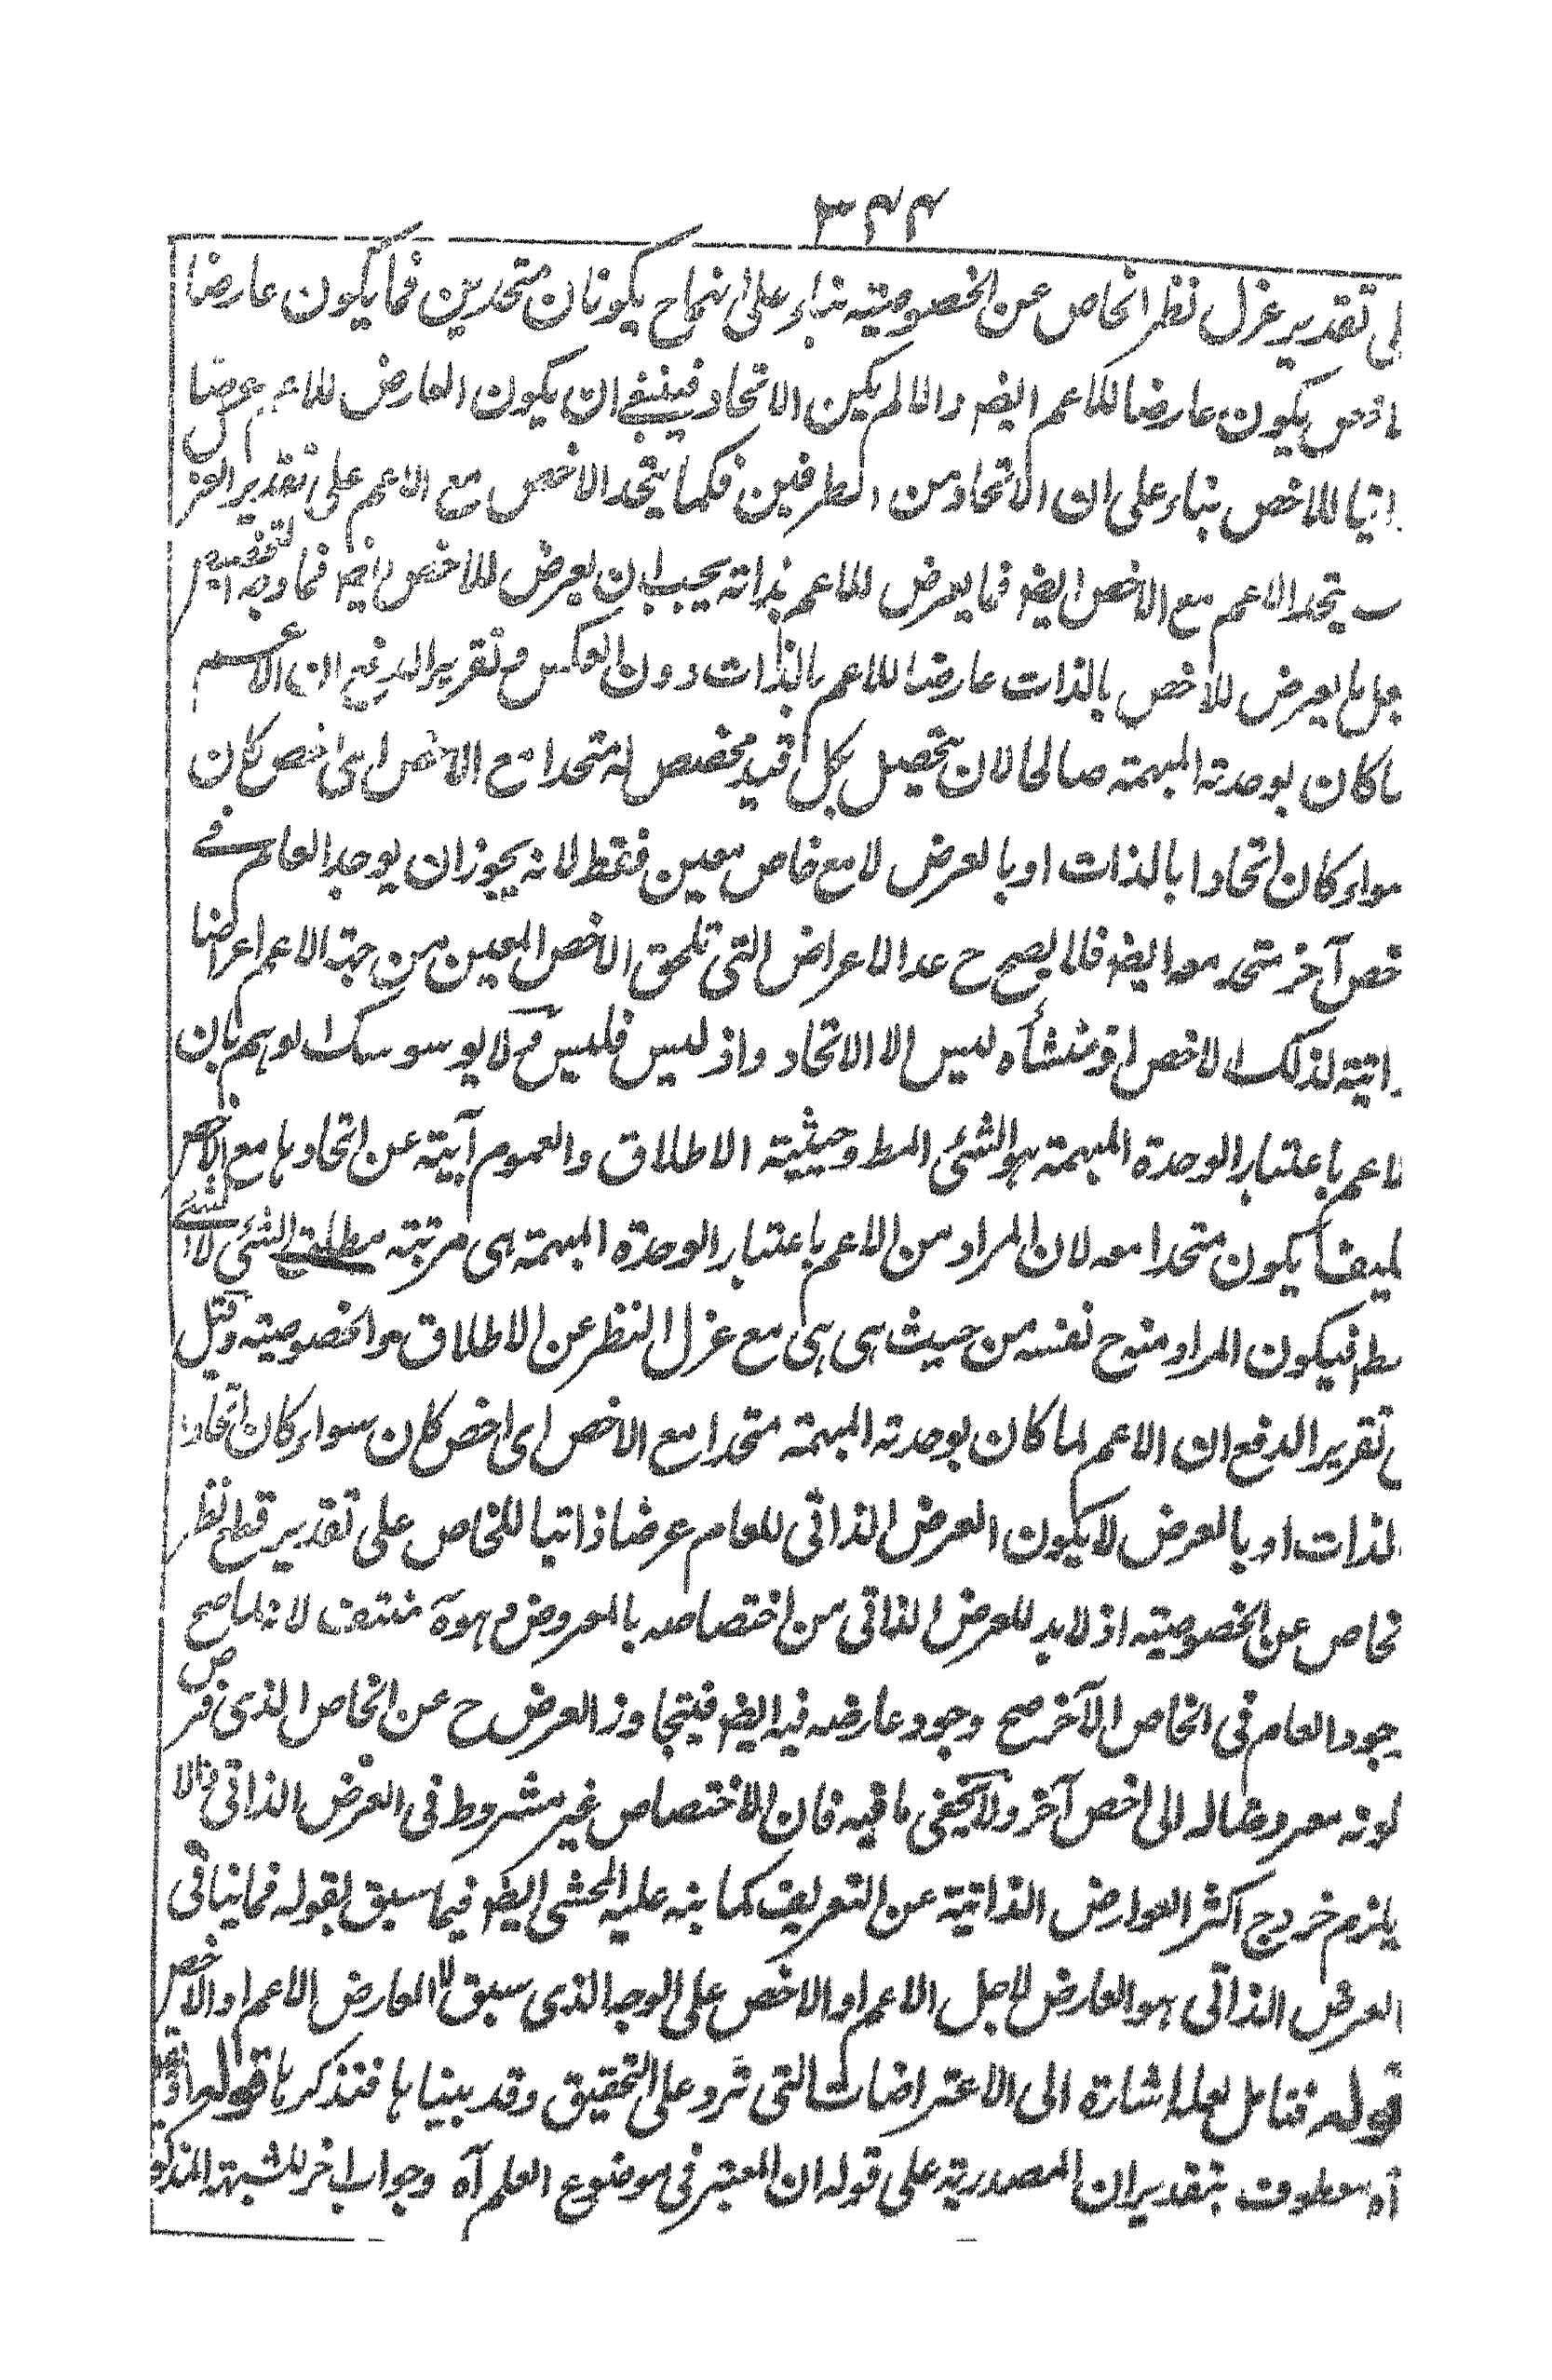 ٣٤٤
لى تقدير عزل نظر الخاص عن الخصوصية بناء على انهما ح يكونان متحدين فما يكون عارضا
يكون عارضا للاعم ايضا والا لم يكن الاتحاد فينبغى ان يكون العارض للاعم عرضا
اتيا للاخص بناء على ان الاتحاد من الطرفين فكما يتحد الاخص مع الاعم على تقدير العز
ـب يتحد الاعم مع الاخص ايضا فما يعرض للاعم بذاته يجب ان يعرض للاخص ايضا فما وجه التخصيص
جل ما يعرض للاخص بالذات عارضا للاعم بالذات دون العكس وتقرير الدفع ان الاعم
ما كان بوحدته المبهمة صالحا لان تحصيل بكل قيد مخصص له متحدا مع الاخص اى اخص كان
سواء كان اتحادا بالذات او بالعرض لا مع خاص معين فقط لانه يجوز ان يوجد العام فى
خص آخر متحد معه ايضا فلا يصح ح عد الاعراض التى تلحق الاخص المعين من جهة الاعم اعراضا
اتية لذلك الاخص اذ منشأه ليس الا الاتحاد واذ ليس فليس وح لا يوسوسك الوهم بان
لاعم باعتبار الوحدة المبهمة هو الشئ المط وحيثية الاطلاق والعموم آبية عن اتحادها مع الاخص
كيف يكون متحدا معه لان المراد من الاعم باعتبار الوحدة المبهمة هى مرتبة مطلق الشئ لا الشئ
مط فيكون المراد منه ح نفسه من حيث هى هى مع عزل النظر عن الاطلاق والخصوصية وقيل
تقرير الدفع ان الاعم لما كان بوحدته المبهمة متحدا مع الاخص اى اخص كان سواء كان اتحادا
لذات او بالعرض لا يكون العرض الذاتى للعام عرضا ذاتيا للخاص على تقدير قطع نظر
لخاص عن الخصوصية اذ لا بد للعرض الذاتى من اختصاصه بالمعروض وهو ة منتف لانه لما صح
جود العام فى الخاص الآخر صح وجود عارضه فيه ايضا فيتجاوز العرض ح عن الخاص الذى فرض
كونه معروضا له الى اخص آخر ولا يخفى ما فيه فان الاختصاص غير مشروط فى العرض الذاتى والا
يلزم خروج اكثر العوارض الذاتية عن التعريف كما نبه عليه المحشى ايضا فيما سبق بقوله فما ينافى
العرض الذاتى هو العارض لاجل الاعم او الاخص على الوجه الذى سبق لا العارض الاعم او الاخص
قوله فتامل لعله اشارة الى الاعتراضات التى ترد على التحقيق وقد بيناها فتذكرها قوله
آه معطوف بتقدير ان المصدرية على قوله ان المعتبر فى موضوع العلم آه وجواب آخر للشبهة المذكو